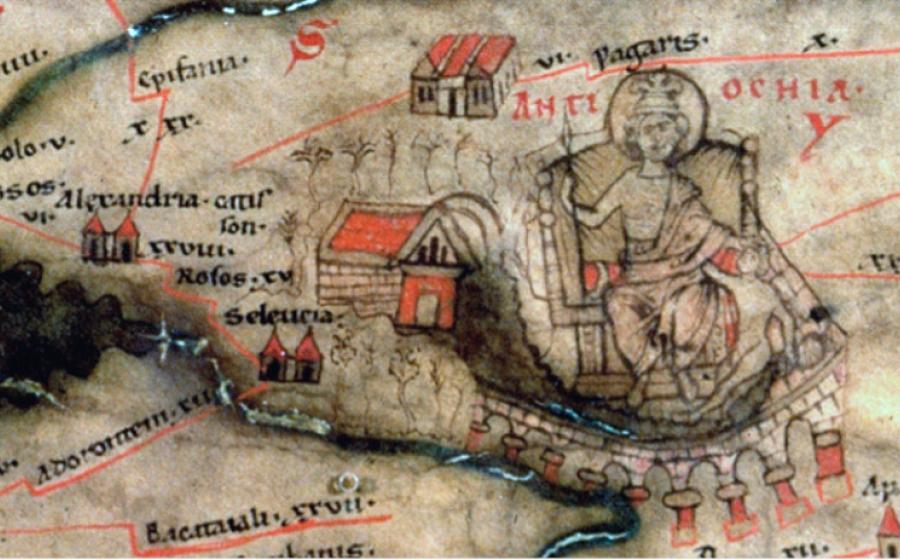 S
Epifania.
vi. pagaris. x.
ANTI OCHIA.
Y
x xx.
olo. v.
ssos.
vi.
Alexandria. catis
son.
xxviii.
Rosos. xv
Seleucia.
Adorontem. xii
Bacataiali. xxvii.